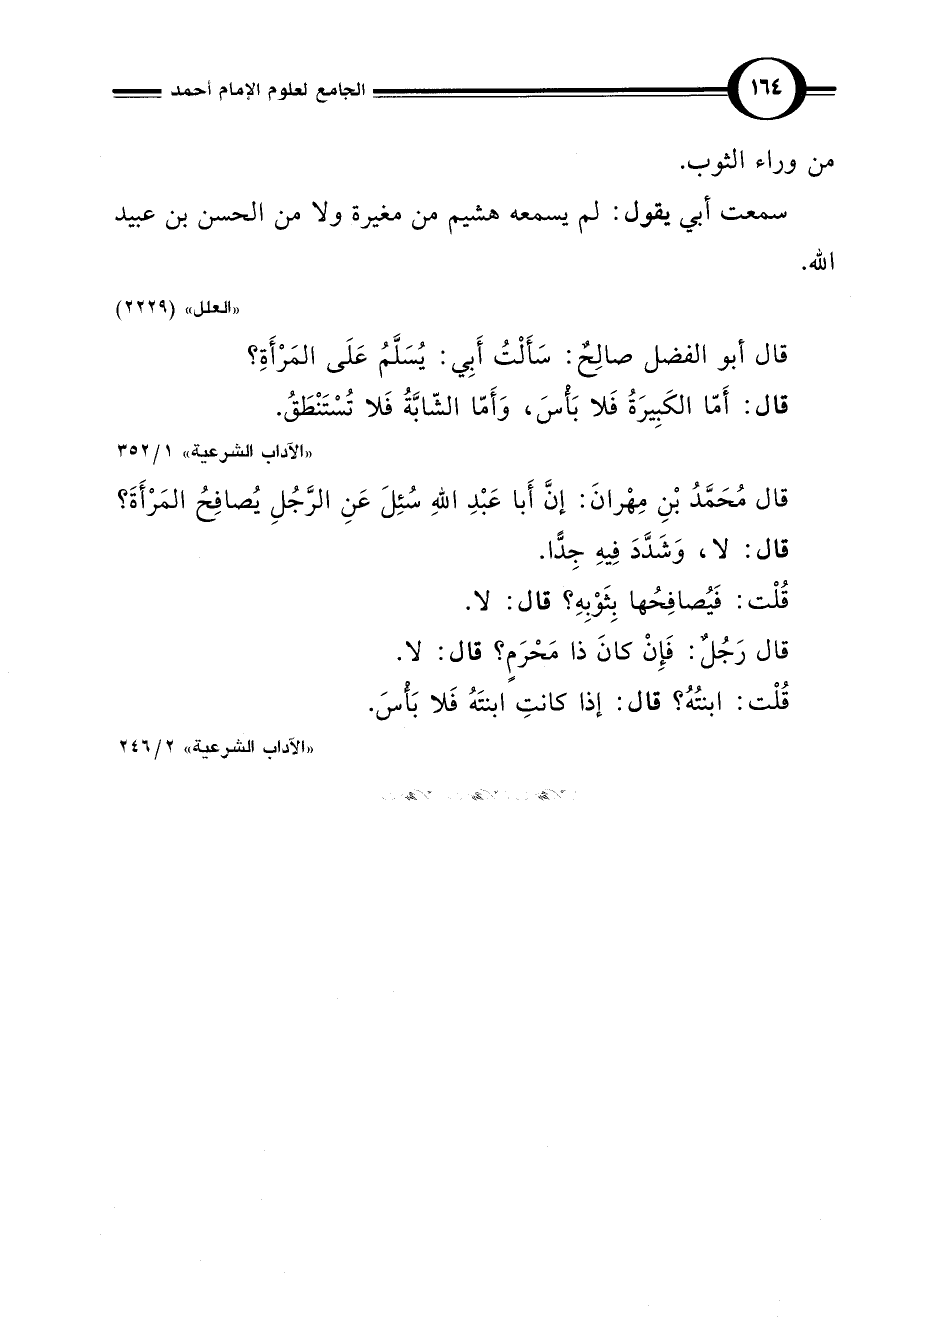 ١٦٤
الجامع لعلوم الإمام أحمد
من وراء الثوب.
سمعت أبي يقول: لم يسمعه هشيم من مغيرة ولا من الحسن بن عبيد
الله.
«العلل» (٢٢٢٩)
قال أبو الفضل صالِحٌ: سَأَلْتُ أَبِي: يُسَلَّمُ عَلَى المَرْأَةِ؟
قال: أَمّا الكَبِيرَةُ فَلا بَأْسَ، وَأَمّا الشّابَّةُ فَلا تُسْتَنْطَقُ.
«الآداب الشرعية» ١/ ٣٥٢
قال مُحَمَّدُ بْنِ مِهْرانَ: إِنَّ أَبا عَبْدِ اللهِ سُئِلَ عَنِ الرَّجُلِ يُصافِحُ المَرْأَةَ؟
قال: لا، وَشَدَّدَ فِيهِ جِدًّا.
قُلْت: فَيُصافِحُها بِثَوْبِهِ؟ قال: لا.
قال رَجُلٌ: فَإِنْ كانَ ذا مَحْرَمٍ؟ قال: لا.
قُلْت: ابنتُهُ؟ قال: إذا كانتِ ابنتَهُ فَلا بَأْسَ.
«الآداب الشرعية» ٢/ ٢٤٦